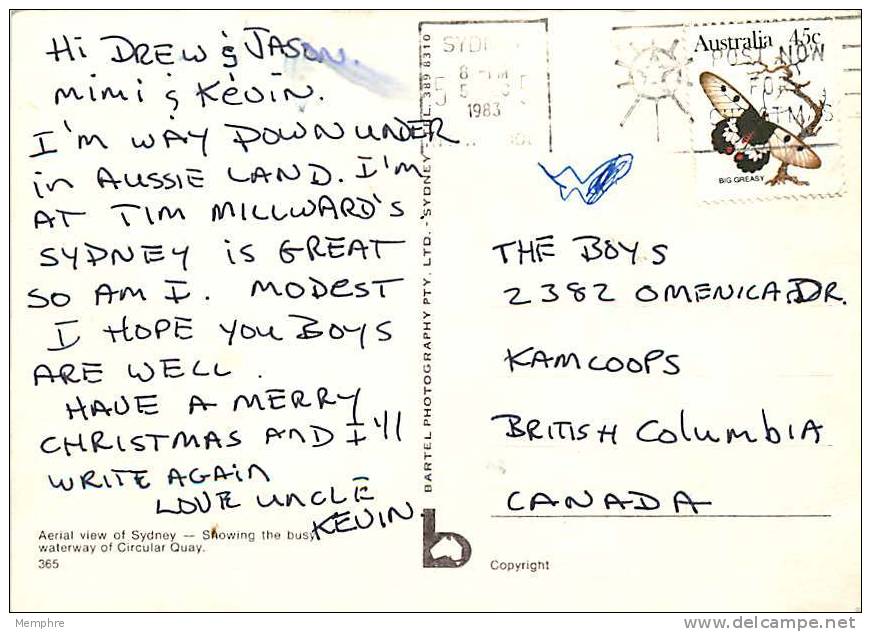 Hi DREW & JASON.
mimi & KEVIN.
I'M WAY DOWN UNDER
in AUSSIE LAND. I'M
AT TIM MILLWARD'S
SYDNEY iS GREAT
SO AM I. MODEST
I HOPE YOU BOYS
ARE WELL.
HAVE A MERRY
CHRISTMAS AND I'll
WRITE AGAiN
LOVE UNCLE
KEVIN.
Aerial view of Sydney — Showing the busy
waterway of Circular Quay.
365
BARTEL PHOTOGRAPHY PTY. LTD. - SYDNEY - TEL. 389 8310
b
SYD
1983
POST NOW
FOR
CHRISTMAS
Australia 45c
BIG GREASY
THE BOYS
2382 OMENICA DR.
KAMLOOPS
BRITISH COLUMBIA
CANADA
Copyright
Memphre
delcampe.net